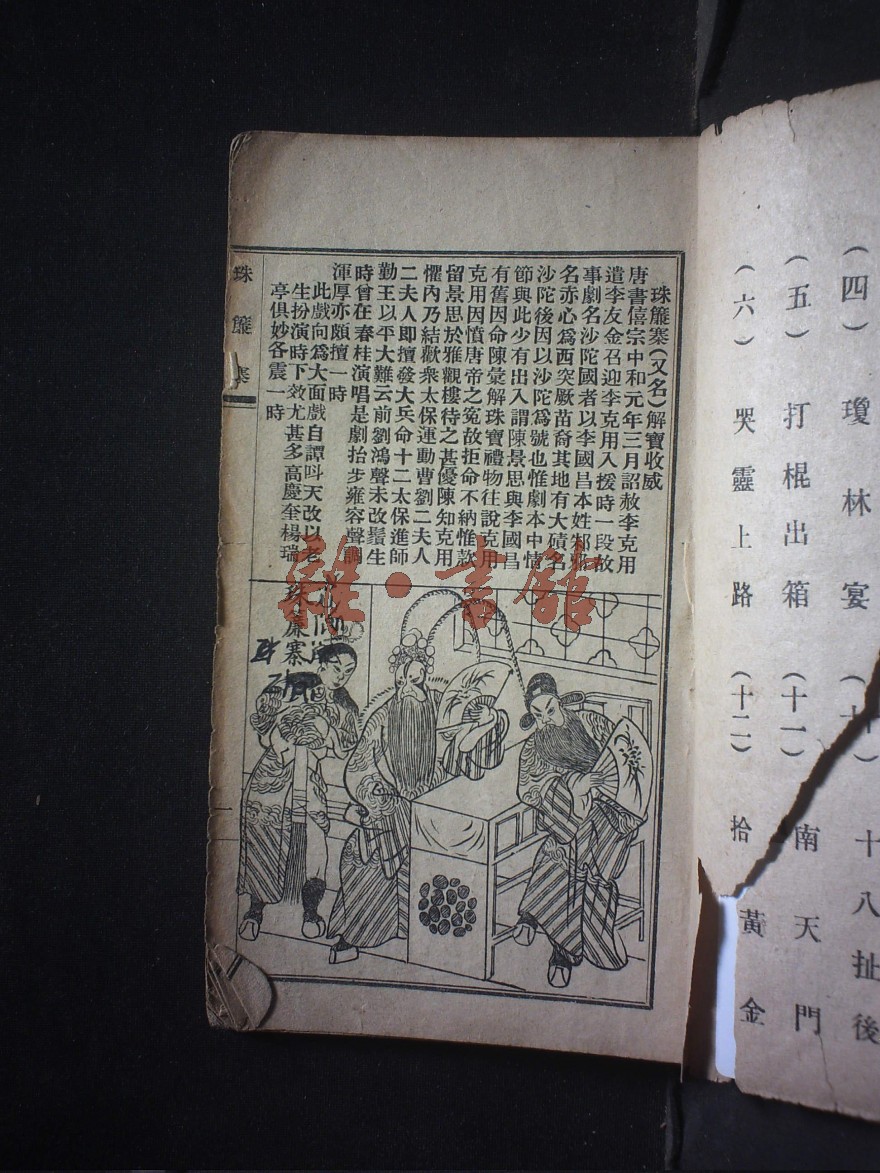 (四)瓊林宴(十)十八扯後
(五)打棍出箱(十一)南天門
(六)哭靈上路(十二)拾黃金
珠簾寨(又名)解寶收威
唐書僖宗中和元年三月詔赦李克用
遣李友金召迎李克用入援時一段故
事劇名沙陀國者以李國昌本姓邾
名赤心爲西突厥苗裔其地有大磧名
沙陀後因以沙陀爲號也惟劇本中情
節與此少有出入謂陳景思與李國昌
有舊因命陳彙解珠寶禮物往說克用
克用因憤唐帝之冤故拒命不納惟款
留景思於雅觀樓待之甚優陳知克用
懼內乃結歡衆太保運動曹劉二夫人
二夫人即擅發大兵命十二太保進師
勤王以平大難云前劉鴻聲未改鬚生
時曾在春桂演唱是劇抬步雍容聲調
渾厚亦頗擅一時
此戲向爲大面戲自譚叫天改以老
生扮演時下效尤甚多高慶奎楊瑞
亭俱妙各震一時
珠簾寨
珠簾寨
雜·書館